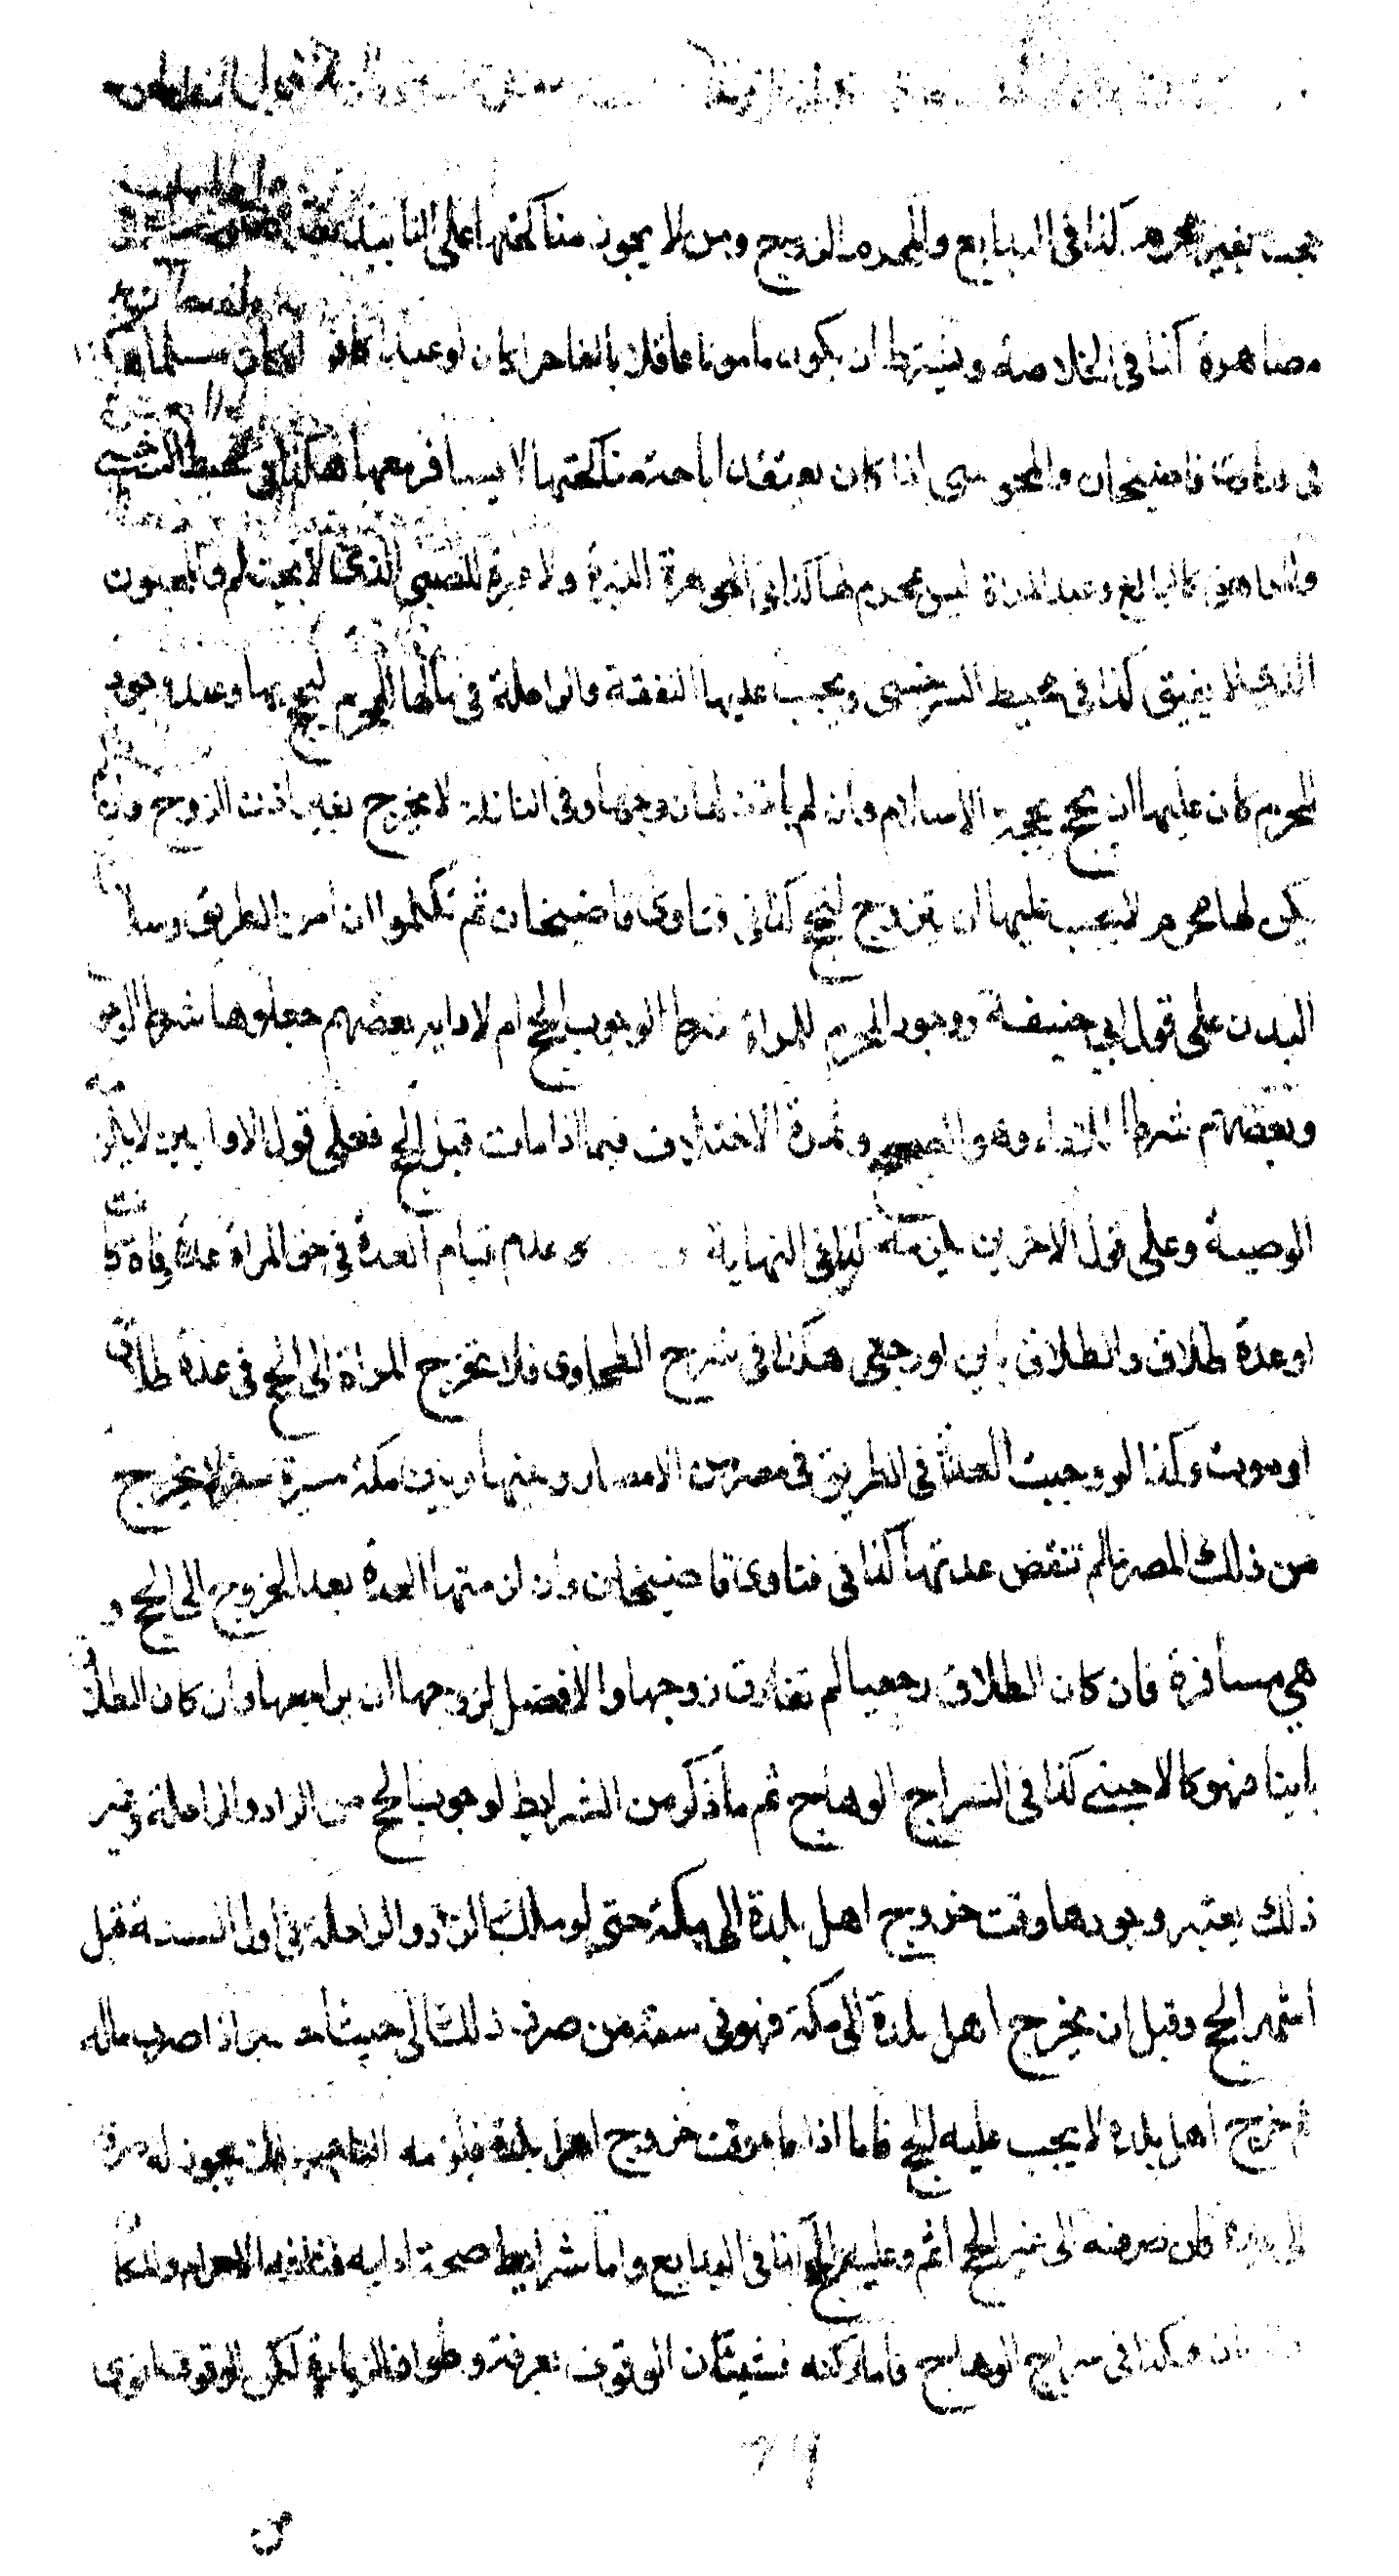 يجب بغير محرم كذا في البدايع والمحرم الزوج ومن لا يجوز مناكحتها على التابيد
مصاهرة كذا في الخلاصة ويشترط ان يكون مامونا عاقلا بالغا حرا كان او عبدا كافرا كان او مسلما هكذا
في فتاوى قاضيخان والمجوسي اذا كان يعتقد اباحة مناكحتها لا يسافر معها هكذا في محيط السرخسي
والمراهق كالبالغ وعبد المراة ليس بمحرم لها كذا في الجوهرة النيرة ولا عبرة للصبي الذي لا يحتلم والمجنون
الذي لا يفيق كذا في محيط السرخسي ويجب عليها النفقة والراحلة في مالها للمحرم ليحج بها وعند وجود
المحرم كان عليها ان يحج بحجة الاسلام وان لم ياذن لها زوجها وفي النافلة لا يخرج بغير اذن الزوج وان لم
يكن لها محرم لا يجب عليها ان يتزوج ليحج كذا في فتاوى قاضيخان ثم تكلموا ان امن الطريق وسلامة
البدن على قول ابي حنيفة ووجود المحرم للمراة شرط الوجوب الحج ام لادايه بعضهم جعلوها شرط الوجوب
وبعضهم شرط الاداء وهو الصحيح وثمرة الاختلاف فيما اذا مات قبل الحج فعلى قول الاولين لا يلزمه
الوصية وعلى قول الاخرين يلزمه كذا في النهاية و عدم قيام العدة في حق المراة عدة وفاة كانت
او عدة طلاق والطلاق باين او رجعي هكذا في شرح الطحاوي فلا تخرج المراة الى الحج في عدة طلاق
او موت وكذا لو وجبت العدة في الطريق في مصر من الامصار وبينها وبين مكة مسيرة سفر لا يخرج
من ذلك المصر ما لم تنقض عدتها كذا في فتاوى قاضيخان وان لزمتها العدة بعد الخروج الى الحج و
هي مسافرة فان كان الطلاق رجعيا لم تفارق زوجها والافضل لزوجها ان يراجعها وان كان الطلاق
باينا فهو كالاجنبي كذا في السراج الوهاج ثم ما ذكر من الشرايط لوجوب الحج من الزاد والراحلة وغير
ذلك يعتبر وجودها وقت خروج اهل بلدة الى مكة حتى لو ملك الزاد والراحلة في اول السنة قبل
اشهر الحج وقبل ان يخرج اهل بلدة الى مكة فهو في سعة من صرف ذلك الى حيث شاء اذا صرف ماله
ثم خرج اهل بلدة لا يجب عليه الحج فاما اذا جاء وقت خروج اهل بلدة فيلزمه التاهب فلا يجوز له صرفه
الى غيره فان صرفه الى غير الحج اثم وعليه الحج كذا في البدايع واما شرايط صحة ادايه فثلثة الاحرام والمكان
والزمان هكذا في سراج الوهاج فاما ركنه فشيئان الوقوف بعرفة وطواف الزيارة لكن الوقوف اقوى
من